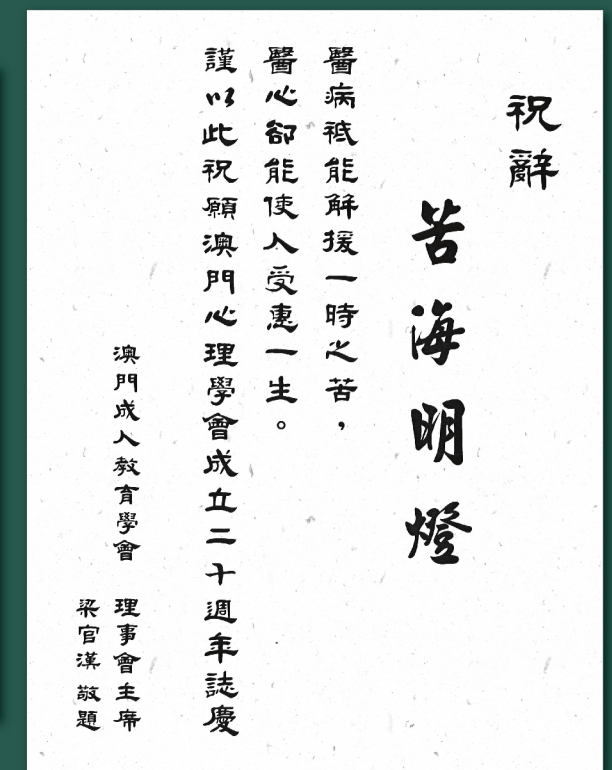 祝辭
苦海明燈
醫病祗能解援一時之苦，
醫心卻能使人受惠一生。
謹以此祝願澳門心理學會成立二十週年誌慶
澳門成人教育學會 理事會主席
梁官漢 敬題